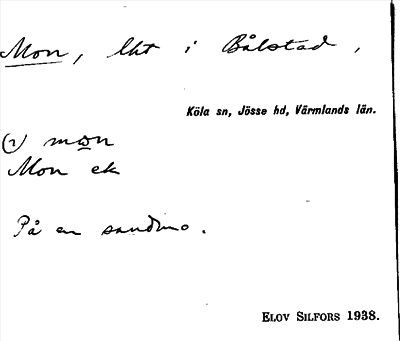 Mon, lht i Bålstad,
Köla sn, Jösse hd, Värmlands län.
(2) mon
Mon ek
På en sandmo.
ELOV SILFORS 1938.